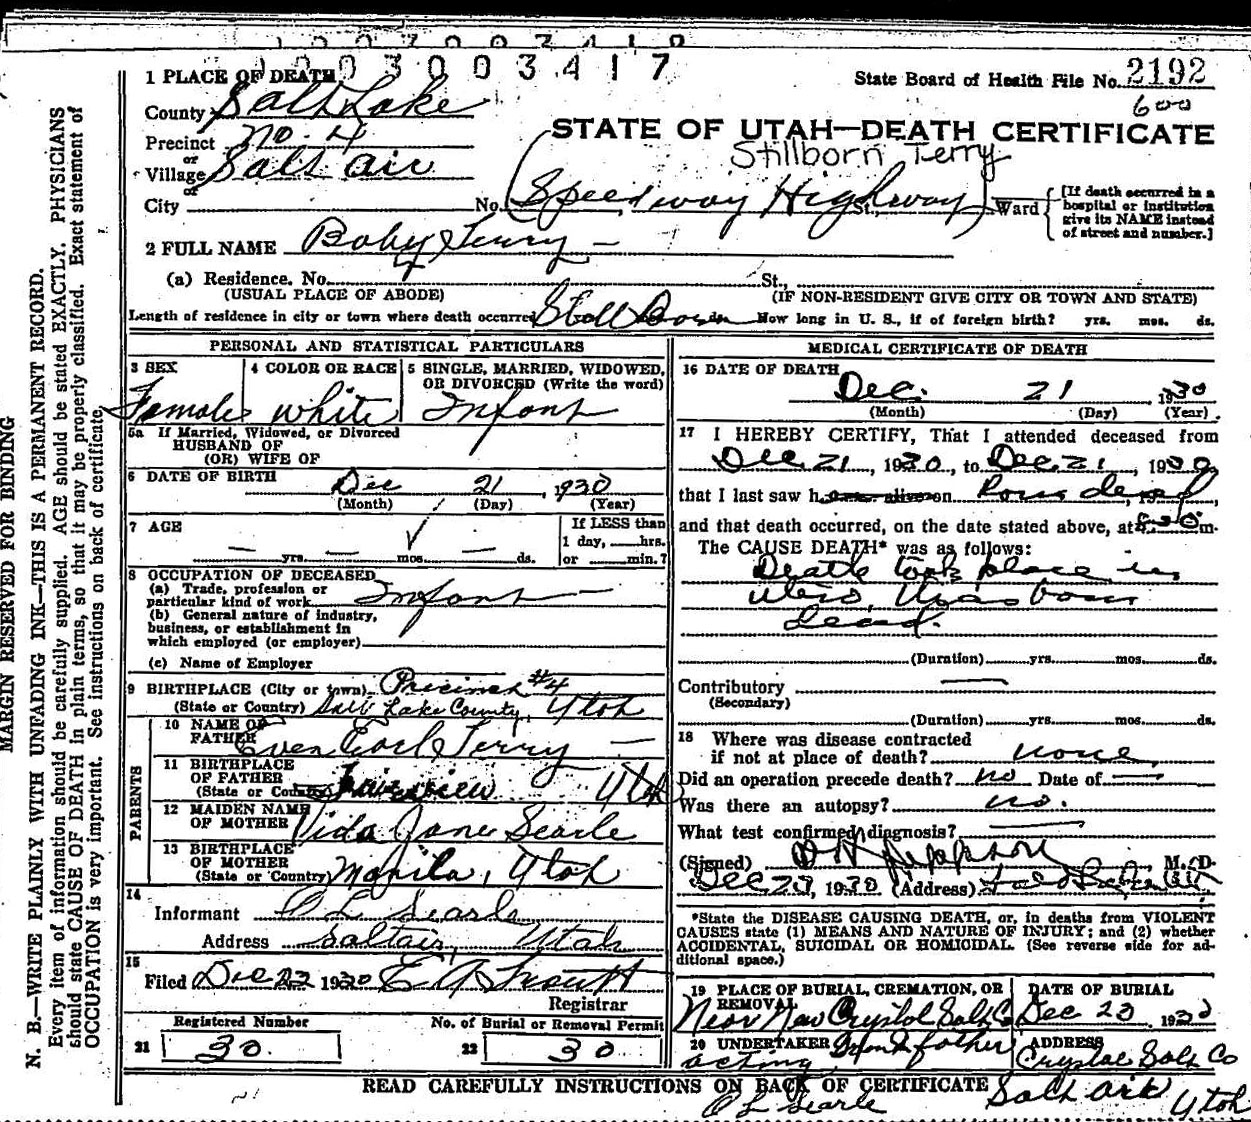 003003417
State Board of Health File No. 2192
600
STATE OF UTAH—DEATH CERTIFICATE
Stillborn Terry
1 PLACE OF DEATH
County Salt Lake
Precinct No. 4
or
Village Salt air
or
City No. (Speedway Highway) St., Ward
[If death occurred in a
hospital or institution
give its NAME instead
of street and number.]
2 FULL NAME Baby Terry —
(a) Residence. No. St.,
(USUAL PLACE OF ABODE) (IF NON-RESIDENT GIVE CITY OR TOWN AND STATE)
Length of residence in city or town where death occurred Still Born ds. How long in U. S., if of foreign birth? yrs. mos. ds.
PERSONAL AND STATISTICAL PARTICULARS
3 SEX 4 COLOR OR RACE 5 SINGLE, MARRIED, WIDOWED,
OR DIVORCED (Write the word)
Female white Infant
5a If Married, Widowed, or Divorced
HUSBAND OF
(OR) WIFE OF
6 DATE OF BIRTH Dec 21, 1930
(Month) (Day) (Year)
7 AGE — yrs. — mos. — ds.
If LESS than
1 day, hrs.
or min.?
8 OCCUPATION OF DECEASED
(a) Trade, profession or
particular kind of work Infant —
(b) General nature of industry,
business, or establishment in
which employed (or employer)
(c) Name of Employer
9 BIRTHPLACE (City or town) Precinct #4
(State or Country) Salt Lake County, Utah
PARENTS
10 NAME OF
FATHER Even Earl Terry —
11 BIRTHPLACE
OF FATHER
(State or Country) Fairview Utah
12 MAIDEN NAME
OF MOTHER Vida Jane Searle
13 BIRTHPLACE
OF MOTHER
(State or Country) Manila, Utah
14
Informant O L Searle
Address Saltair, Utah
15
Filed Dec 23 1930 E A
Registrar
Registered Number No. of Burial or Removal Permit
21 30. 22 30
MEDICAL CERTIFICATE OF DEATH
16 DATE OF DEATH
Dec. 21, 1930
(Month) (Day) (Year)
17 I HEREBY CERTIFY, That I attended deceased from
Dec 21, 1930, to Dec. 21, 1930,
that I last saw h alive on Born dead, 19
and that death occurred, on the date stated above, at m.
The CAUSE DEATH* was as follows:
Death took place in
utero, Was born
dead.
(Duration) yrs. mos. ds.
Contributory —
(Secondary)
(Duration) yrs. mos. ds.
18 Where was disease contracted
if not at place of death? none
Did an operation precede death? no Date of —
Was there an autopsy? no.
What test confirmed diagnosis? —
(Signed) M. D.
Dec 23, 1930 (Address)
*State the DISEASE CAUSING DEATH, or, in deaths from VIOLENT
CAUSES state (1) MEANS AND NATURE OF INJURY; and (2) whether
ACCIDENTAL, SUICIDAL OR HOMICIDAL. (See reverse side for ad-
ditional space.)
19 PLACE OF BURIAL, CREMATION, OR
REMOVAL
Near New Crystal Salt Co
DATE OF BURIAL
Dec 23 1930
20 UNDERTAKER Grandfather
acting
O L Searle
ADDRESS
Crystal Salt Co
Salt air Utah
READ CAREFULLY INSTRUCTIONS ON BACK OF CERTIFICATE
MARGIN RESERVED FOR BINDING
N. B.—WRITE PLAINLY WITH UNFADING INK—THIS IS A PERMANENT RECORD.
Every item of information should be carefully supplied. AGE should be stated EXACTLY. PHYSICIANS
should state CAUSE OF DEATH in plain terms, so that it may be properly classified. Exact statement of
OCCUPATION is very important. See instructions on back of certificate.